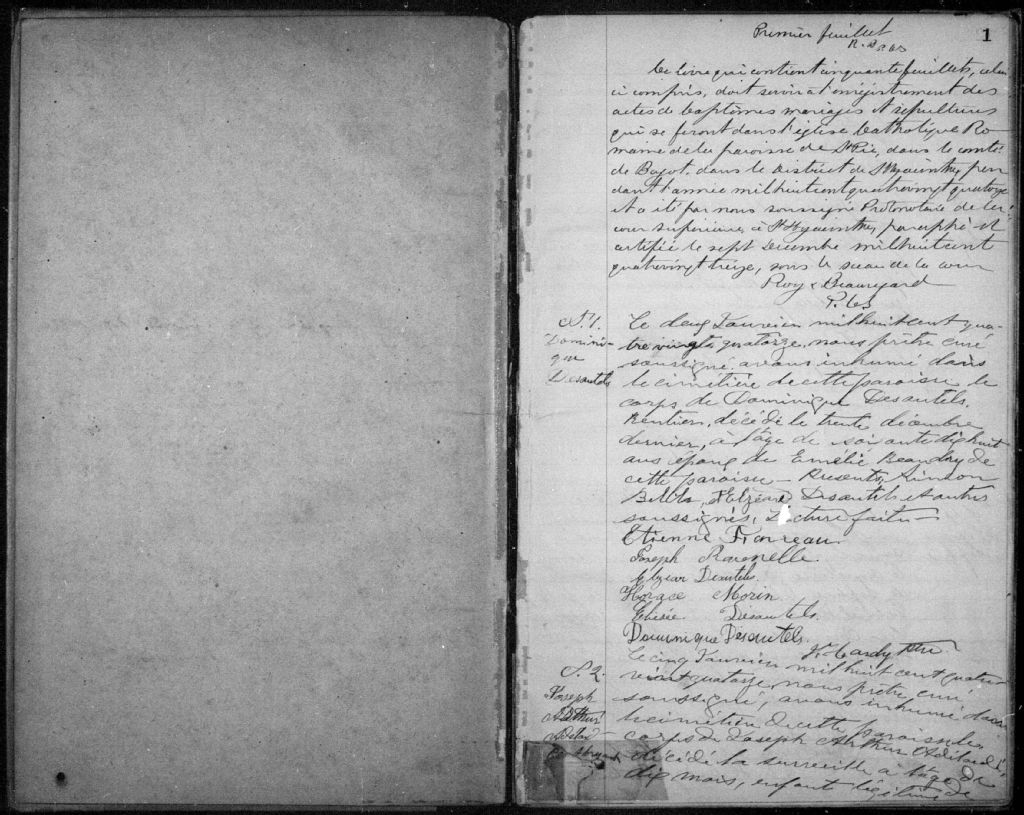 Premier feuillet
1
Ce livre qui contient cinquante feuillets, celui
ci compris, doit servir à l'enregistrement des
actes de baptêmes mariages et sépultures
qui se feront dans l'église Catholique Ro
maine de la paroisse de St Pie, dans le comté
de Bagot, dans le District de St Hyacinthe, pen
dant l'année milhuitcent quatrevingt quatorze
et a été par nous soussigné Protonotaire de la
cour supérieure, à St Hyacinthe, paraphé et
certifié le sept Décembre milhuitcent
quatrevingt treize, sous le sceau de la cour
Roy & Beauregard
P.C.S
S. 1.
Domini-
que
Desautels
Le deux Janvier milhuitcent qua-
tre vingt quatorze, nous prêtre curé
soussigné avons inhumé dans
le cimetière de cette paroisse le
corps de Dominique Desautels,
Rentier, décédé le trente décembre
dernier, à l'âge de soixante dix huit
ans époux de Emélie Beaudry de
cette paroisse — Présents,
Elzéar Desautels et autres
soussignés, Lecture faite —
Etienne
Joseph
Elzéar Desautels.
Horace Morin
Désautels.
Dominique Désautels.
Ptre
S. 2.
Joseph
Arthur
Adélard
Le cinq Janvier mil huit cent quatre
vingt quatorze nous prêtre curé
soussigné, avons inhumé dans
le cimetière de cette paroisse le
corps de Joseph Arthur Adélard
décédé la surveille à l'âge de
dix mois, enfant légitime de